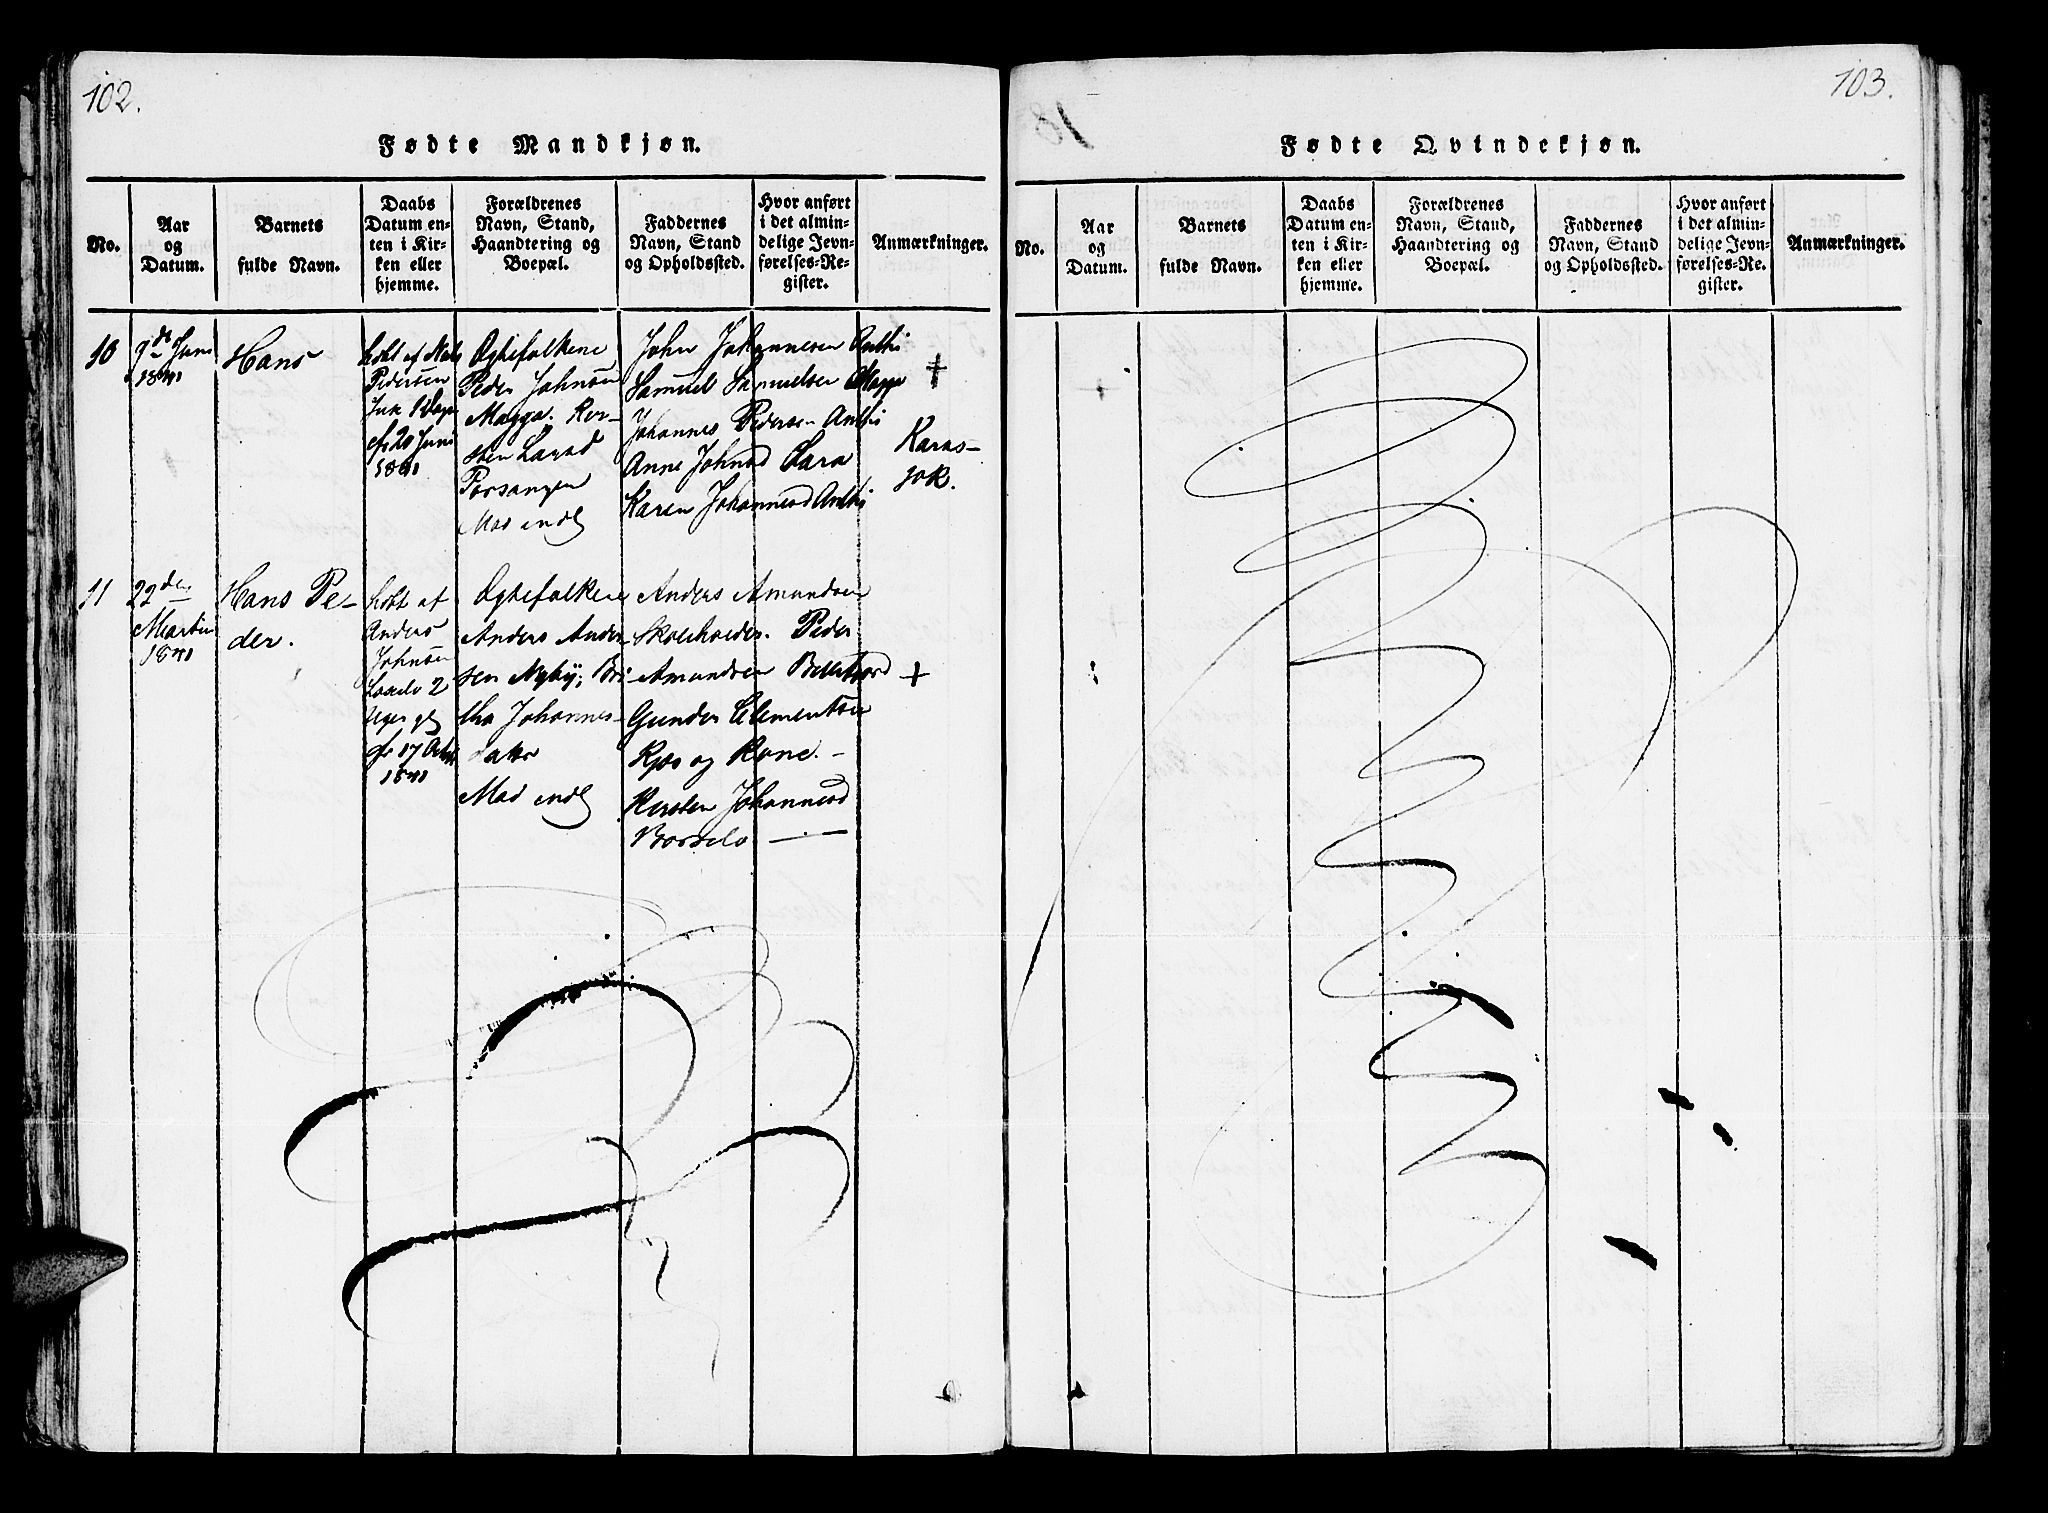 102.
Fødte Mandkjøn.
No.
Aar
og
Datum.
Barnets
fulde Navn.
Daabs
Datum en-
ten i Kir-
ken eller
hjemme.
Forældrenes
Navn, Stand,
Haandtering og
Boepæl.
Faddernes
Navn, Stand
og Opholdssted.
Hvor anført
i det almin-
delige Jevn-
førelses-Re-
gister.
Anmærkninger.
10
9de Juni
1841
Hans
døbt af Nels
Pedersen
20 Juni
1841
Egtefolkene
Peder Johnsen
Magga. Kir-
sten Larsd
Porsangen
Mod indl
John Johannesen Anthi
Samuel Samuelsen Magga
Johannes Pedersen Anthi
Anne Johnsd Sara
Karen Johannesd Anthi
†
Karas-
jok.
11
22den
Martii
1841
Hans Pe-
der.
døbt af
Anders
Johnsen
2
17 Octbr
1841
Egtefolkene
Anders Ander-
sen Nyby; Bri-
tha Johannes-
datter
Mod indl
Anders Amundsen
Skoleholder. Peder
Amundsen
Gunder Clementsen
og Kone. -
Kirsten Johannesd
Børselv —
†
103.
Fødte Qvindekjøn.
No.
Aar
og
Datum.
Barnets
fulde Navn.
Daabs
Datum en-
ten i Kir-
ken eller
hjemme.
Forældrenes
Navn, Stand,
Haandtering og
Boepæl.
Faddernes
Navn, Stand
og Opholdssted.
Hvor anført
i det almin-
delige Jevn-
førelses-Re-
gister.
Anmærkninger.